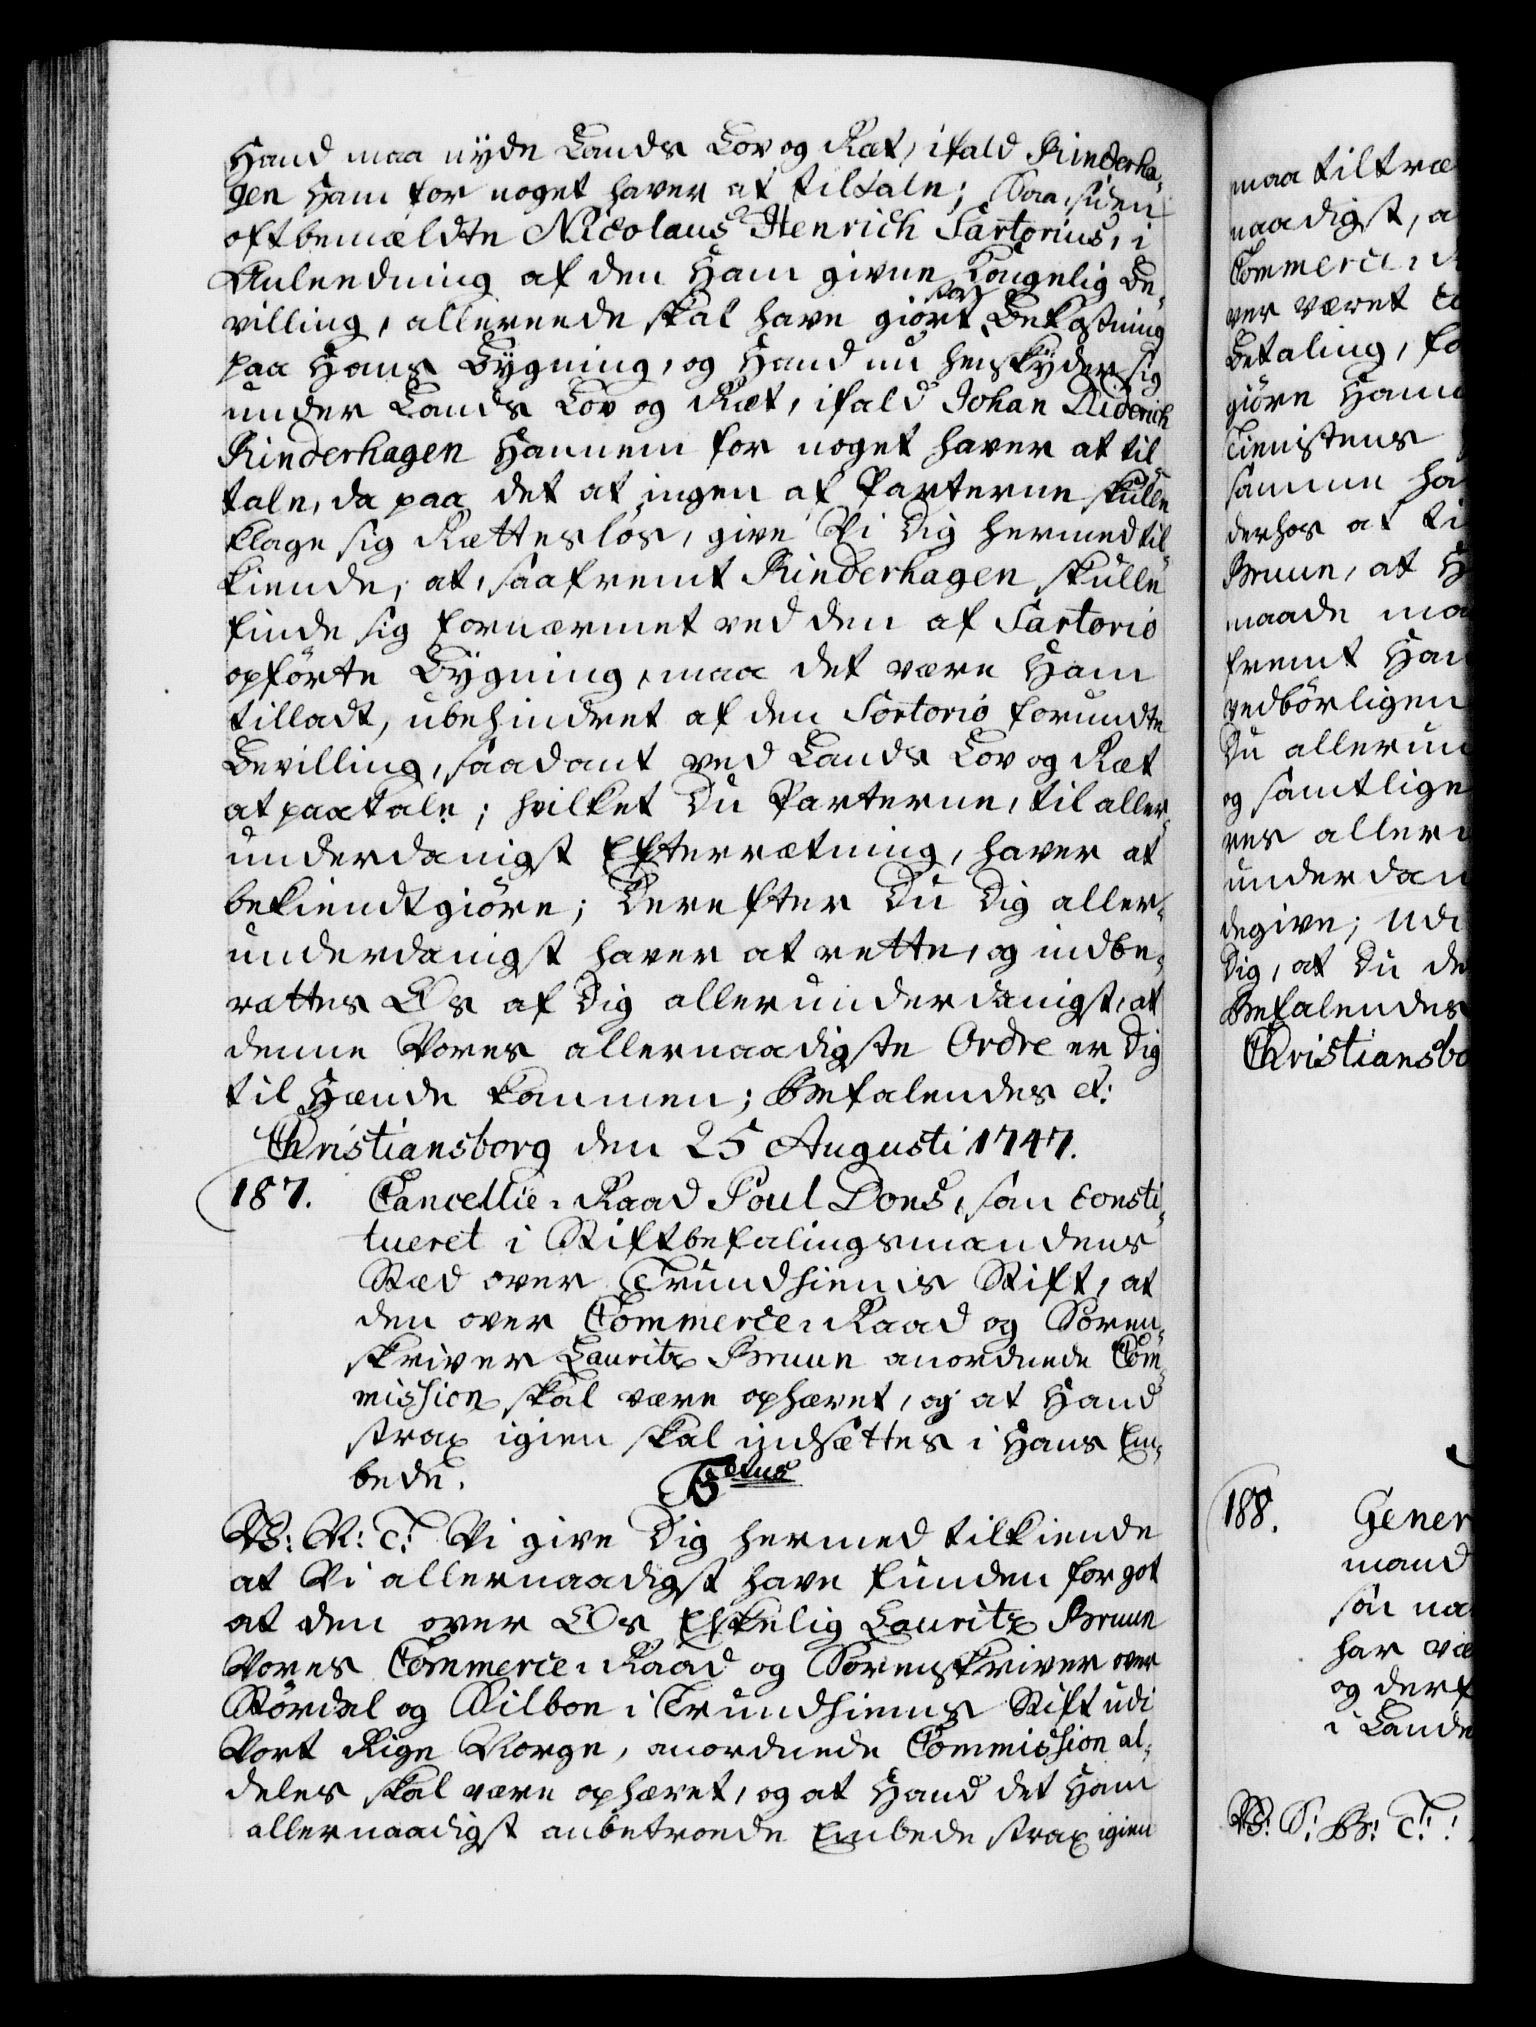 Hand maa nÿde Lands Lov og Ræt, ifald Rinderha„
gen Ham for noget haver at tiltale; Saa siden
oftbemældte Nicolaus Henrich Sartorius, i
Anleedning af den Ham givne Kongelig Be„
villing, allereede skal have giört stor Bekostning
paa Hans Bÿgning, og Hand nu henskÿder sig
under Lands Lov og Ræt, ifald Johan Diderich
Rinderhagen Hannem for noget haver at til„
tale, da paa det at ingen af Parterne skulle
klage sig Rættesløs, give Vi Dig hermed til„
kiende, at, saafremt Rinderhagen skulle
finde sig fornærmet ved den af Sartorio
opförte Bÿgning, maa det være Ham
tilladt, ubehindret af den Sartorio forundte
Bevilling, saadant ved Lands Lov og Ræt
at paatale; hvilket Du Parterne, til aller„
underdanigst Efterrætning, haver at
bekiendtgiöre; Derefter Du Dig aller„
underdanigst haver at rette, og indbe„
rættes Os af Dig allerunderdanigst, at
denne Vores allernaadigste Ordre er Dig
til Hænde kommen; Befalendes etc:
Christiansborg den 25 Augusti 1747.
187. Cancellie-Raad Poul Dons, som consti„
tueret i Stiftbefalingsmandens
Stæd over Trundhiems Stift, at
den over Commerce-Raad og Soren„
skriver Lauritz Bruun anordnede Com„
mission skal være ophævet, og at Hand
strax igien skal indsættes i Hans Em„
bede.
V: V: T: Vi give Dig hermed tilkiende
at Vi allernaadigst have funden for got
at den over Os Elskelig Lauritz Bruun
Vores Commerce-Raad og Sorenskriver over
Stördal og Selboe i Trundhiems Stift udi
Vort Rige Norge, anordnede Commission al„
deles skal være ophævet, og at Hand det Ham
allernaadigst anbetroede Embede strax igien
maa tiltræ
naadigst, a
Commerce-R
ver været
Betaling, fo
giöre Ham
Tienistens
samme ha
derhos at ti
Bruun, at H
maade ma
fremt Han
vedbörligen
Du allerun
og samtlige
res aller
underdan
degive; Udi
Dig, at Du de
Befalendes
Christiansbo
188. Gener
mand
son na
har væ
og derf
i Lande
V: S: B: T: